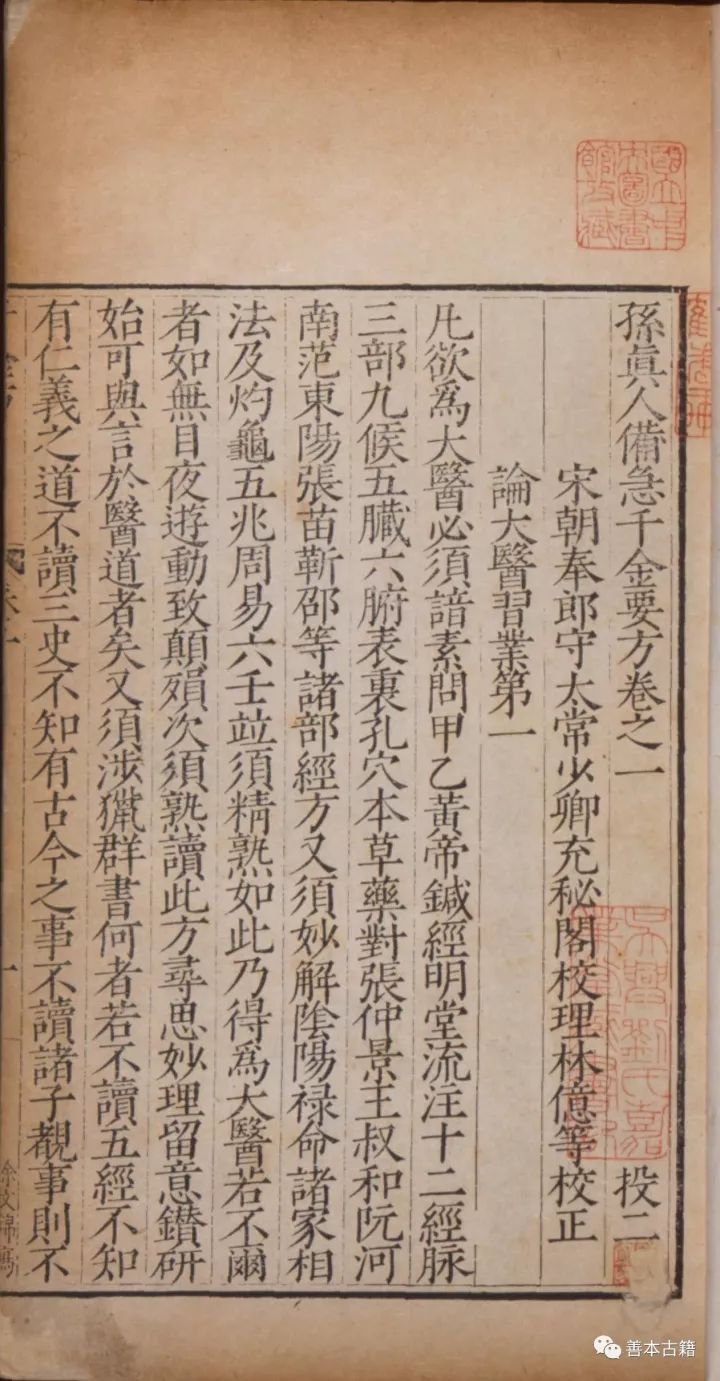 孫眞人備急千金要方卷之一 投二
宋朝奉郎守太常少卿充秘閣校理林億等校正
論大醫習業第一
凡欲爲大醫必須諳素問甲乙黃帝鍼經明堂流注十二經脉
三部九候五臟六腑表裏孔穴本草藥對張仲景王叔和阮河
南范東陽張苗靳邵等諸部經方又須妙解陰陽禄命諸家相
法及灼龜五兆周易六壬竝須精熟如此乃得爲大醫若不爾
者如無目夜遊動致顛殞次須熟讀此方尋思妙理留意鑚研
始可與言於醫道者矣又須涉獵群書何者若不讀五經不知
有仁義之道不讀三史不知有古今之事不讀諸子覩事則不
一
善本古籍